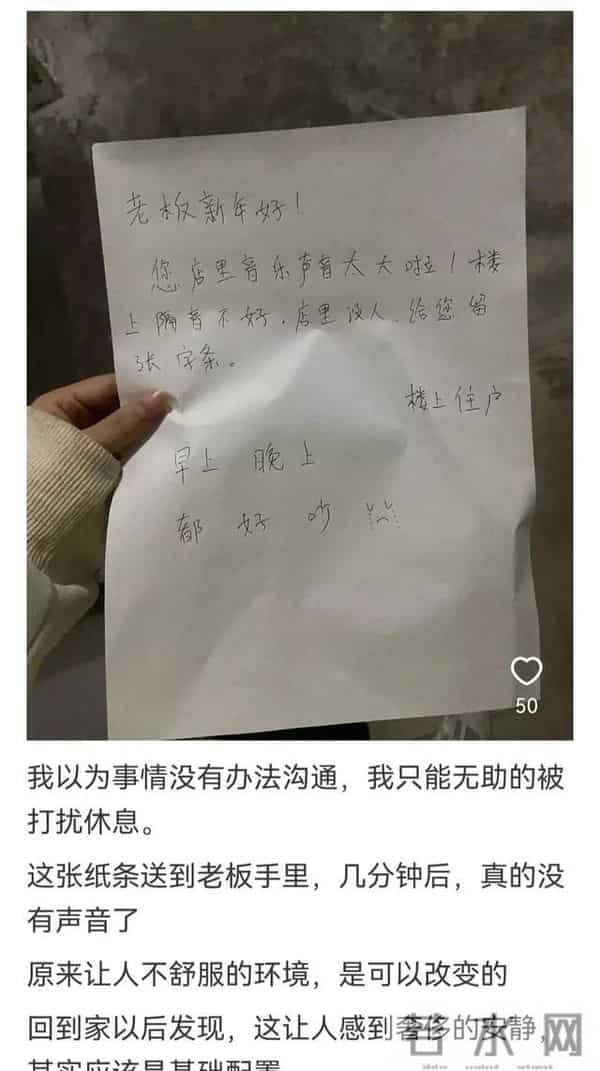 老板新年好！
您店里音乐声音太大啦！楼
上隔音不好，店里没人，给您留
张字条。
楼上住户
早上 晚上
都好吵
50
我以为事情没有办法沟通，我只能无助的被
打扰休息。
这张纸条送到老板手里，几分钟后，真的没
有声音了
原来让人不舒服的环境，是可以改变的
回到家以后发现，这让人感到奢侈的安静，
其实应该是基础配置